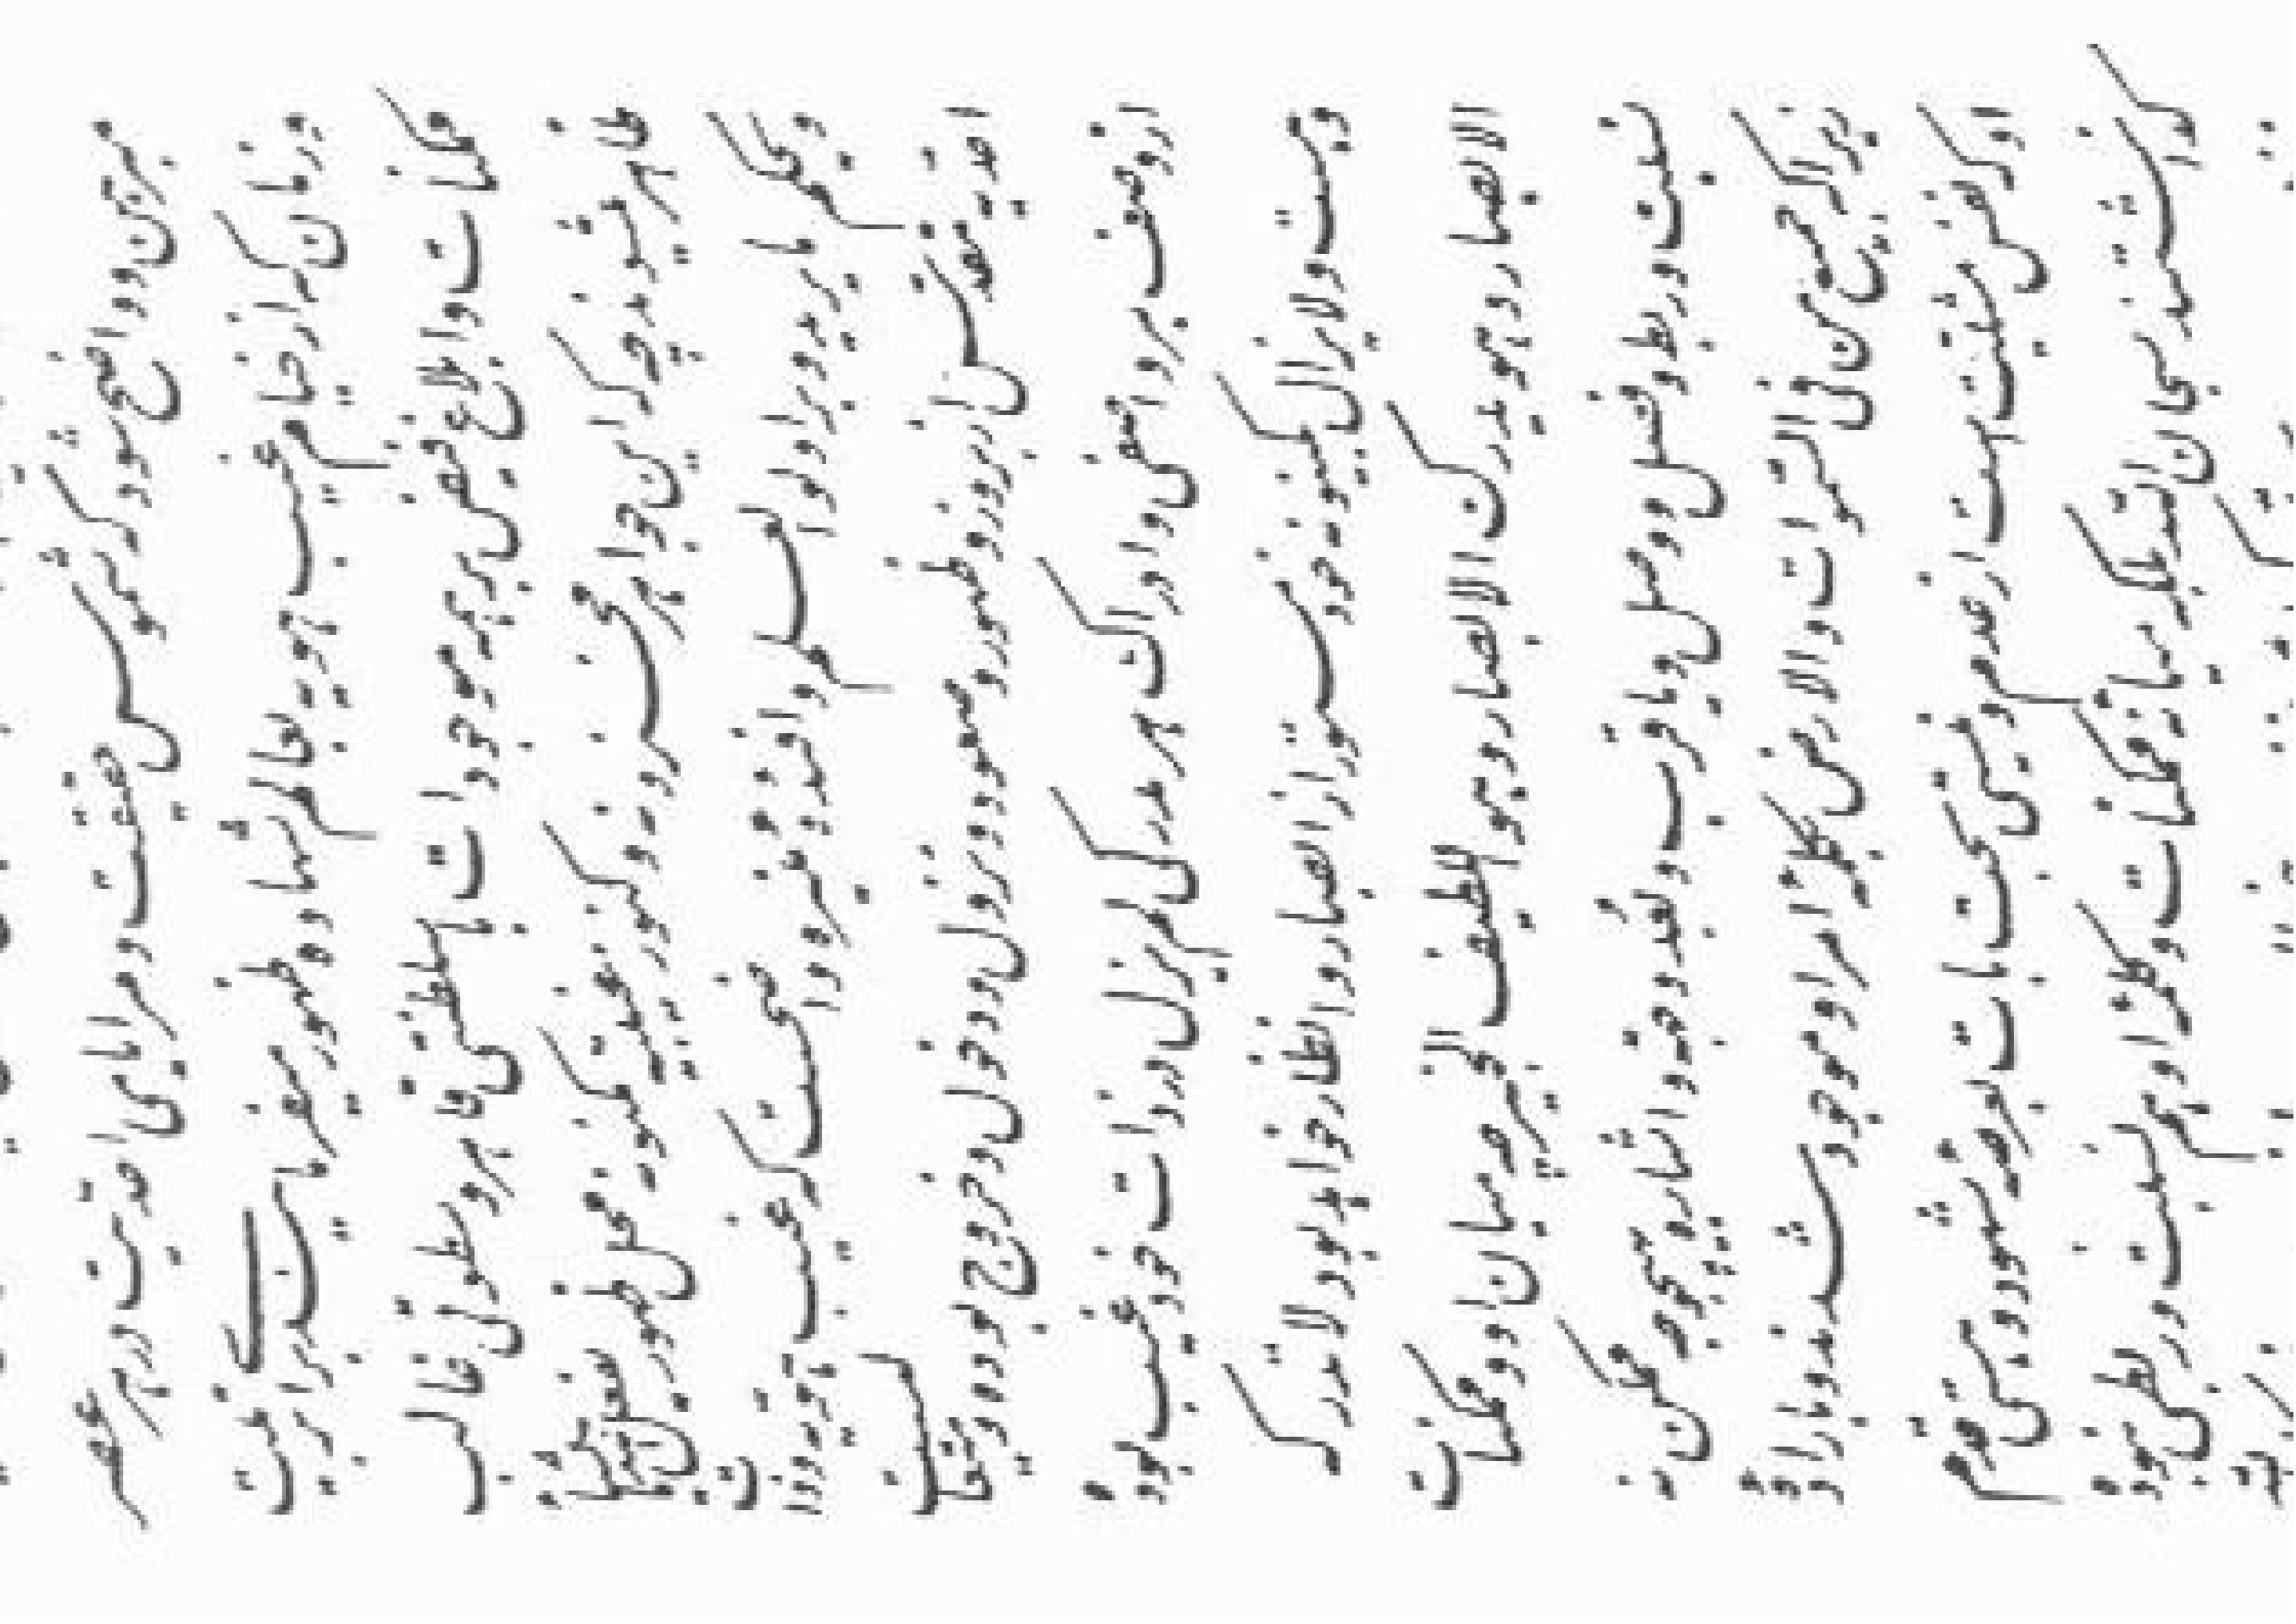 مبرهن و واضح شود که شموس حقیقت و مرایای احدیت در هر عصر
و زمان که از خیام غیب هویه بعالم شهاده ظهور میفرمایند برای تربیت
ممکنات و ابلاغ فیض بر همه موجودات با سلطنتی قاهر و سطوتی غالب
ظاهر میشوند چه که این جواهر مخزونه و کنوز غیبیه مکنونه محل ظهور یفعل الله ما یشاء
و یحکم ما یرید و بر اولوا العلم و افئده منیره واضح است که غیب هویه و ذات
احدیه مقدس از بروز و ظهور و صعود و نزول و دخول و خروج بوده و متعالی است
از وصف هر واصفی و ادراک هر مدرکی لم یزل در ذات خود غیب بوده
و هست و لا یزال بکینونت خود مستور از ابصار و انظار خواهد بود لا تدرکه
الابصار و هو یدرک الابصار و هو اللطیف الخبیر چه میان او و ممکنات
نسبت و ربط و فصل و وصل و یا قرب و بعد و جهت و اشاره بهیچوجه ممکن نه
زیرا که جمیع من فی السموات و الارض بکلمه امر او موجود شدند و باراده
او که نفس مشیت است از عدم و نیستی بحت بات بعرصه شهود و هستی قدم
گذاشتند سبحان الله بلکه میانه ممکنات و کلمه او هم نسبت و ربطی نبوده